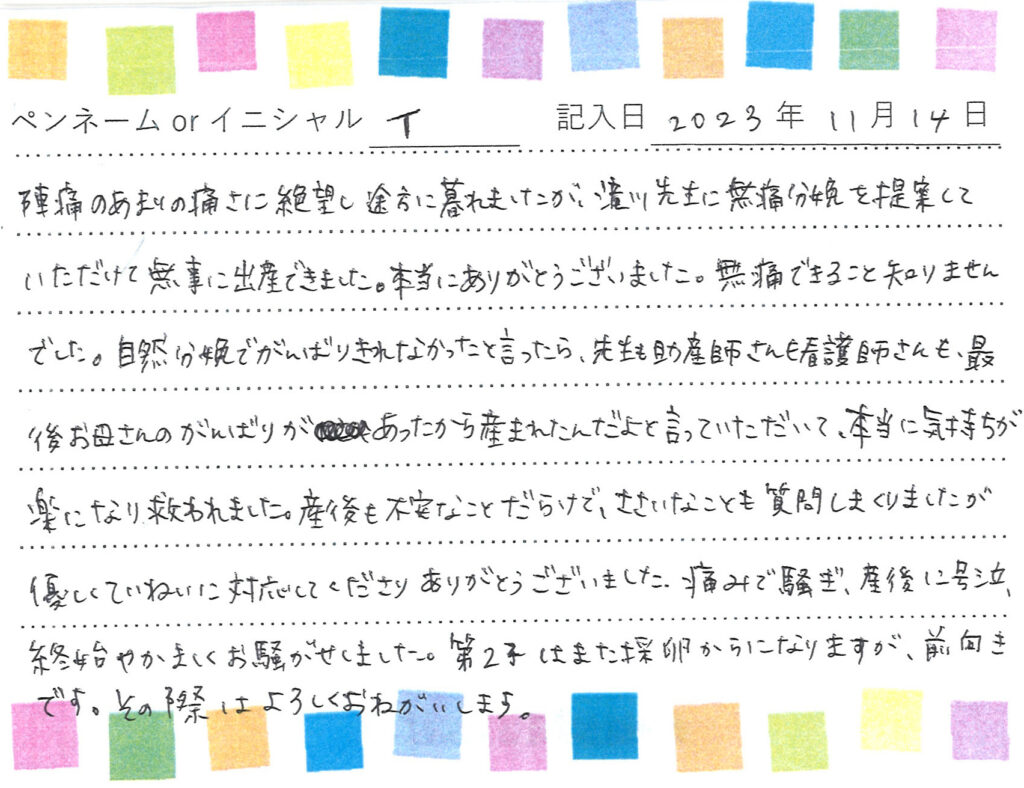 ペンネーム or イニシャル イ 記入日 2023年 11月14日
陣痛のあまりの痛さに絶望し途方に暮れましたが、滝川先生に無痛分娩を提案して
いただけて無事に出産できました。本当にありがとうございました。無痛できること知りません
でした。自然分娩でがんばりきれなかったと言ったら、先生も助産師さんも看護師さんも、最
後お母さんのがんばりがあったから産まれたんだよと言っていただいて、本当に気持ちが
楽になり救われました。産後も不安なことだらけで、ささいなことも質問しまくりましたが
優しくていねいに対応してくださりありがとうございました。痛みで騒ぎ、産後に号泣、
終始やかましくお騒がせしました。第2子はまた採卵からになりますが、前向き
です。その際はよろしくおねがいします。